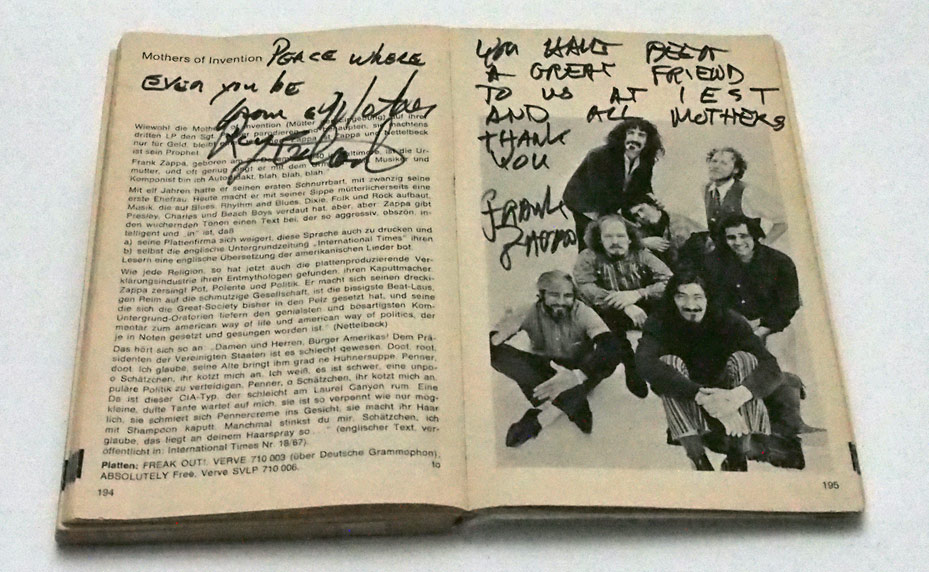 Mothers of Invention PEACE WHERE
EVER you be
from a Mother
Wiewohl die Mothers of Invention (Mütter der auf ihrer
dritten LP den Sgt. parodieren und behaupten, sie machens
nur für Geld, bleibt Zappa ist Zappa und Nettelbeck
ist sein Prophet.
Frank Zappa, geboren am ist die Ur-
mutter, und oft genug singt er mit dem Musiker und
Komponist bin ich Autodidakt, blah, blah, blah.
Mit elf Jahren hatte er seinen ersten Schnurrbart, mit zwanzig seine
erste Ehefrau. Heute macht er mit seiner Sippe mütterlicherseits eine
Musik, die auf Blues, Rhythm and Blues, Dixie, Folk und Rock aufbaut,
Presley, Charles und Beach Boys verdaut hat, aber, aber: Zappa gibt
den wuchernden Tönen einen Text bei, der so aggressiv, obszön, in-
telligent und „in" ist, daß
a) seine Plattenfirma sich weigert, diese Sprache auch zu drucken und
b) selbst die englische Untergrundzeitung „International Times" ihren
Lesern eine englische Übersetzung der amerikanischen Lieder bot.
Wie jede Religion, so hat jetzt auch die plattenproduzierende Ver-
klärungsindustrie ihren Entmythologen gefunden, ihren Kaputtmacher.
Zappa zersingt Pot, Polente und Politik. Er macht sich seinen drecki-
gen Reim auf die schmutzige Gesellschaft, ist die bissigste Beat-Laus,
die sich die Great-Society bisher in den Pelz gesetzt hat, und seine
Untergrund-Oratorien liefern den genialsten und bösartigsten Kom-
mentar zum american way of life und american way of politics, der
je in Noten gesetzt und gesungen worden ist." (Nettelbeck)
Das hört sich so an: „Damen und Herren, Bürger Amerikas! Dem Prä-
sidenten der Vereinigten Staaten ist es schlecht gewesen. Doot, root,
doot. Ich glaube, seine Alte bringt ihm grad ne Hühnersuppe. Penner,
o Schätzchen, ihr kotzt mich an. Ich weiß, es ist schwer, eine unpo-
puläre Politik zu verteidigen. Penner, o Schätzchen, ihr kotzt mich an.
Da ist dieser CIA-Typ, der schleicht am Laurel Canyon rum. Eine
kleine, dufte Tante wartet auf mich, sie ist so verpennt wie nur mög-
lich, sie schmiert sich Pennercreme ins Gesicht, sie macht ihr Haar
mit Shampoon kaputt. Manchmal stinkst du mir, Schätzchen, ich
glaube, das liegt an deinem Haarspray so . . ." (englischer Text, ver-
öffentlicht in: International Times Nr. 18/67).
Platten: FREAK OUT!, VERVE 710 003 (über Deutsche Grammophon),
ABSOLUTELY Free, Verve SVLP 710 006. to
194
YOU HAVE BEEN
A GREAT FRIEND
TO US AT IEST
AND ALL MOTHERS
THANK
YOU
FRANK
ZAPPA
195